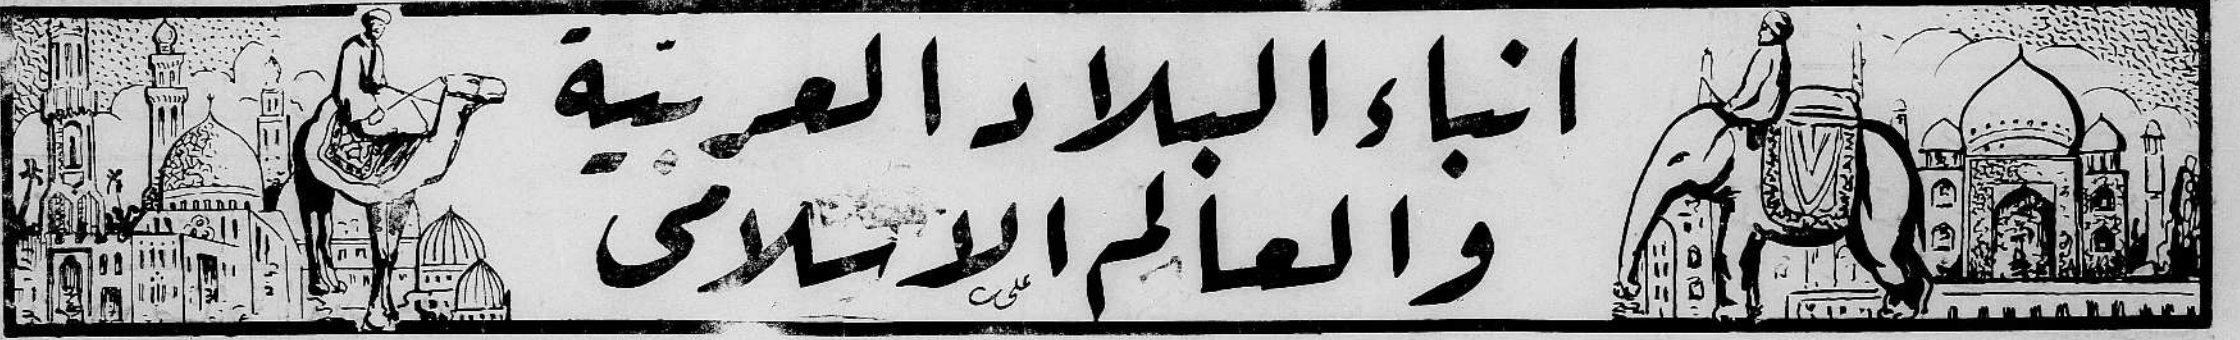 انباء البلاد العربيّة
والعالم الاسلامى